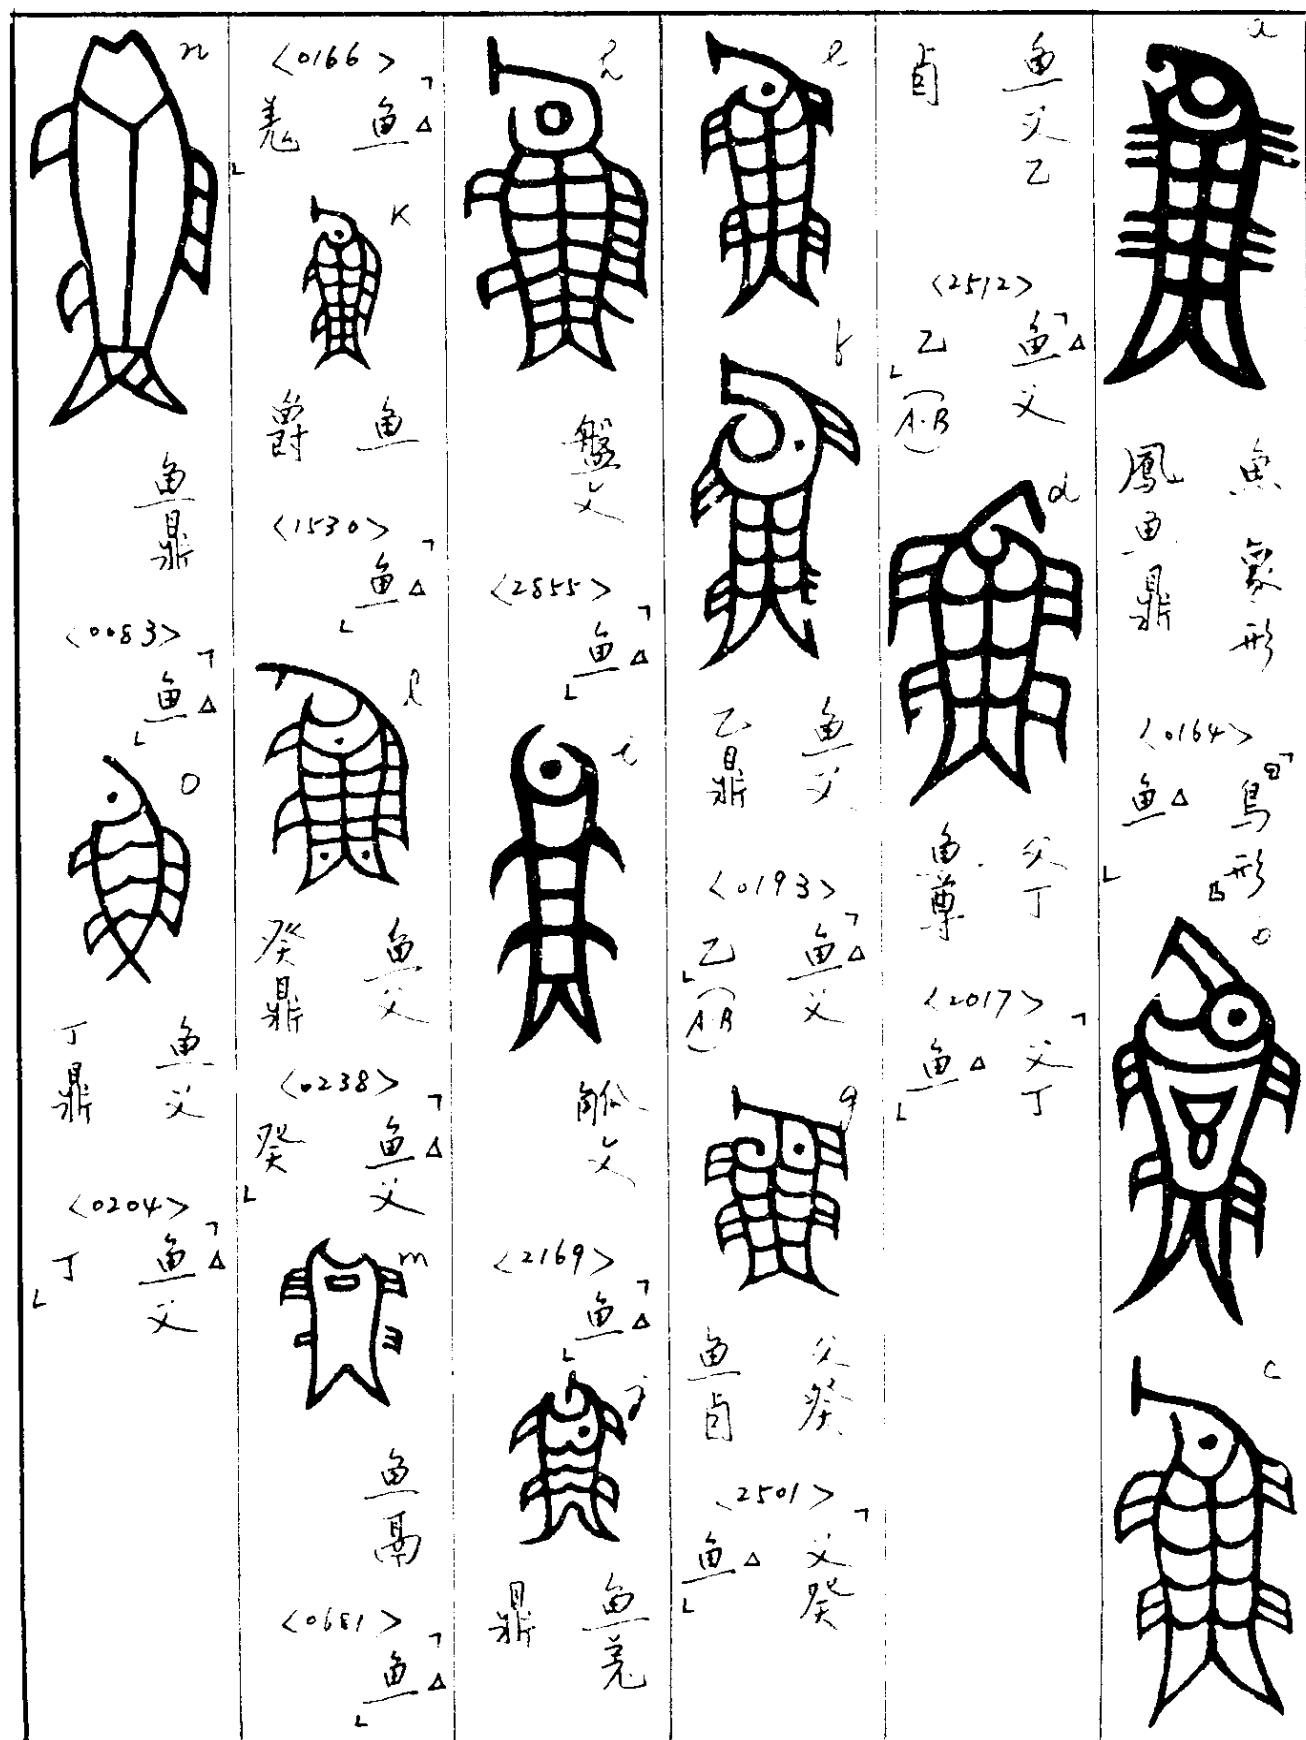 a
魚 象形
鳳魚鼎
<0164>
「鳥形
魚△」
b
c
魚父乙
卣
<2512>
「魚△父
乙」
(A·B)
d
父丁
魚尊
<2017>
「父丁
魚△」
e
f
魚父
乙鼎
<0193>
「魚△父
乙」
(A·B)
g
父癸
魚卣
<2501>
「父癸
魚△」
h
盤文
<2855>
「魚△」
i
觚文
<2169>
「魚△」
j
魚羌
鼎
<0166>
「魚△
羌」
K
魚
爵
<1530>
「魚△」
l
魚父
癸鼎
<0238>
「魚△父
癸」
m
魚鬲
<0681>
「魚△」
n
魚鼎
<0083>
「魚△」
o
魚父
丁鼎
<0204>
「魚△父
丁」